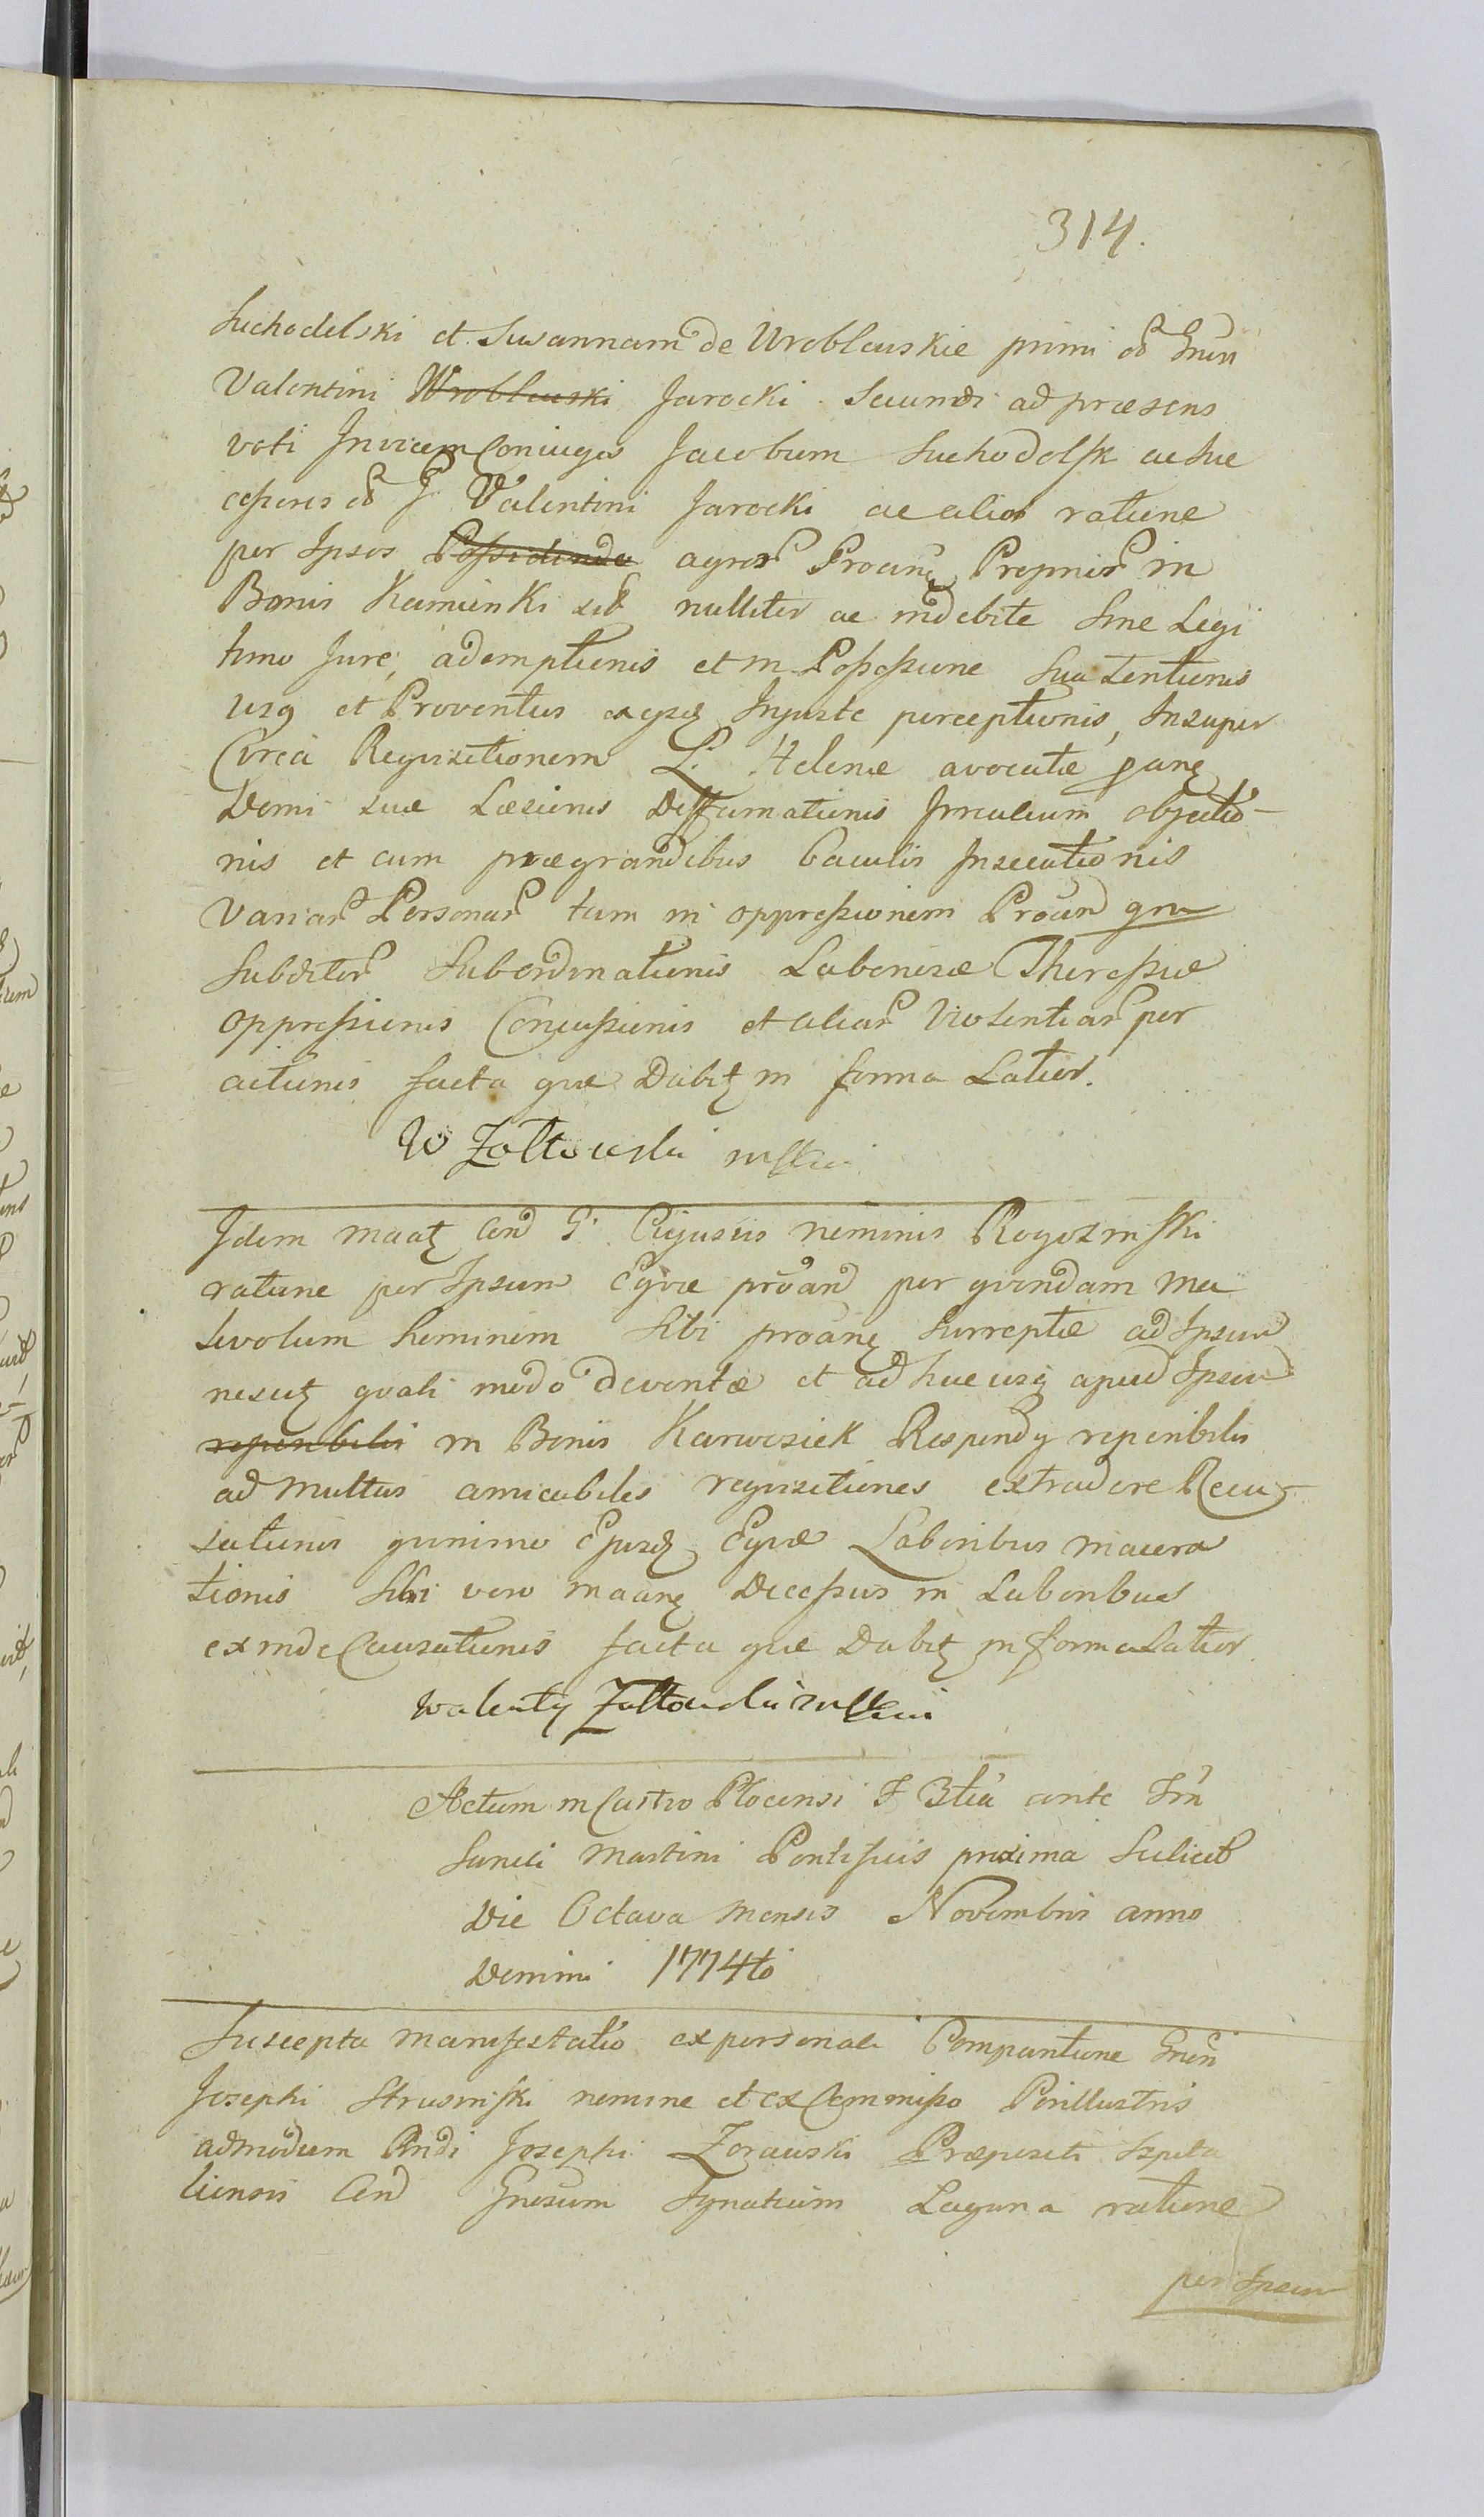 314.
Suchodelski et Susannam de Wroblewskie primi od Gnen
Valentini Wroblewski Jarocki Secundi ad præsens
voti Invicem Coniuges Jacobum Suchodolsk ac Suc
cessores od G Valentini Jarocki ac alios ratione
per Ipsos Possidende agror Proan Proprior in
Bonis Kamienki sit nulliter ac indebite Sine Legi
timo Jure, ademptionis et in Possessione Sua Tentionis
usq et Proventus exijsd Injuste perceptionis, Insuper
Circa Requisitionem L. Helenæ avocatæ
Domi suæ Læsionis Diffamationis objectio-
nis et cum prægrandibus baculis Insecutionis
Variar Personar tum in oppressionem Proan gn
Subditor Subordinationis Laboriosæ Theressiæ
oppressionis Concussionis et aliar Violentiar per
actionis facta que Dabit in forma Latior.
W Zoltowski mppa
Idem maat Con G. Cujusvis nominis Rogozinski
ratione per Ipsum Eqvæ proan per qvendam ma
levolum hominem Sibi proan Surreptæ ad Ipsum
nescit qvali modo deventæ et adhucusq apud Ipsum
reperibilis in Bonis Karwosiek Respondg reperibilis
ad Multas amicabiles reqvisitiones extradere Recu-
sationis qvinimo Ejusd Eqvæ Laboribus macera
tionis Sibi vero maan Decessus in Laboribus
exinde Causationis facta que Dabit in forma Latior.
Walenty Zoltowski mppa
Actum in Castro Plocensi F 3tia ante Fm
Sancti Martini Pontificis proxima Scilicet
Die Octava Mensis Novembris anno
Domini 1774to
Suscepta manifestatio ex personali Comparitione Gnen
Josephi Strusinski nomine et ex Commisso Perillustris
admodum Rndi Josephi Zorawski Præpositi Szpita
liensis Con Gnosum Ignatium Laguna ratione
per Ipsum